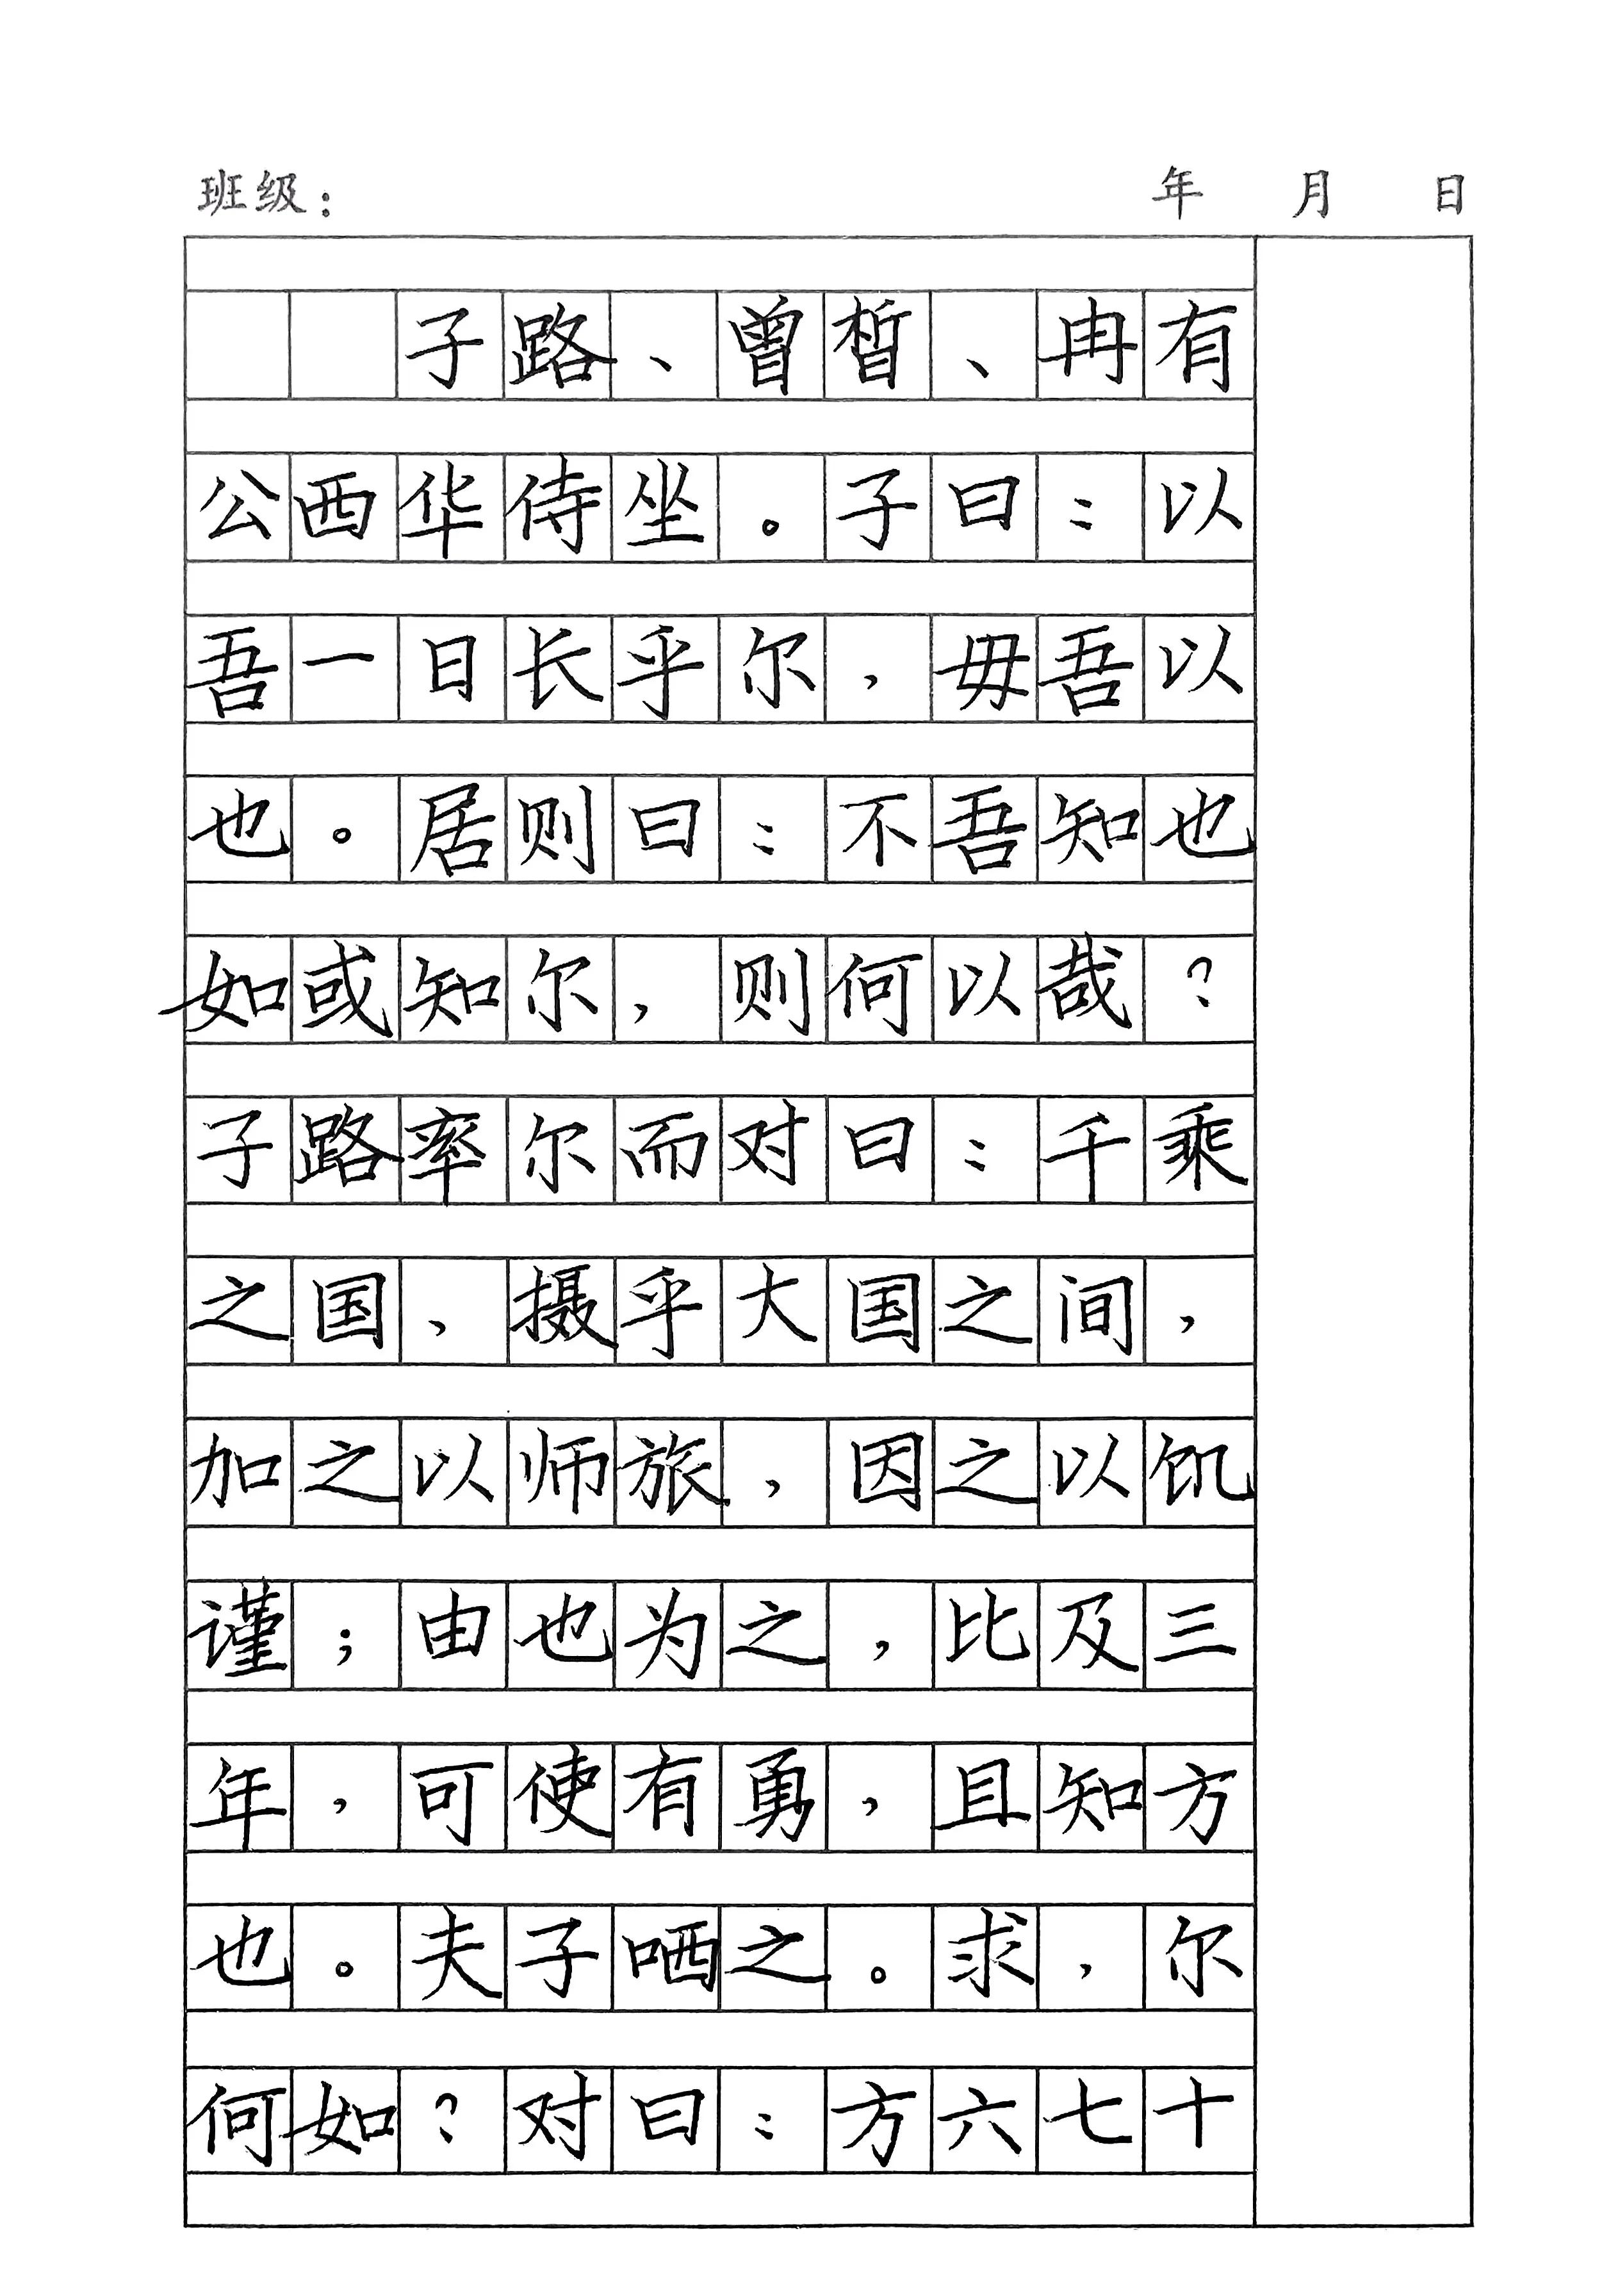 班级： 年 月 日
子路、曾皙、冉有
公西华侍坐。子曰：以
吾一日长乎尔，毋吾以
也。居则曰：不吾知也
如或知尔，则何以哉？
子路率尔而对曰：千乘
之国，摄乎大国之间，
加之以师旅，因之以饥
谨；由也为之，比及三
年，可使有勇，且知方
也。夫子哂之。求，尔
何如？对曰：方六七十